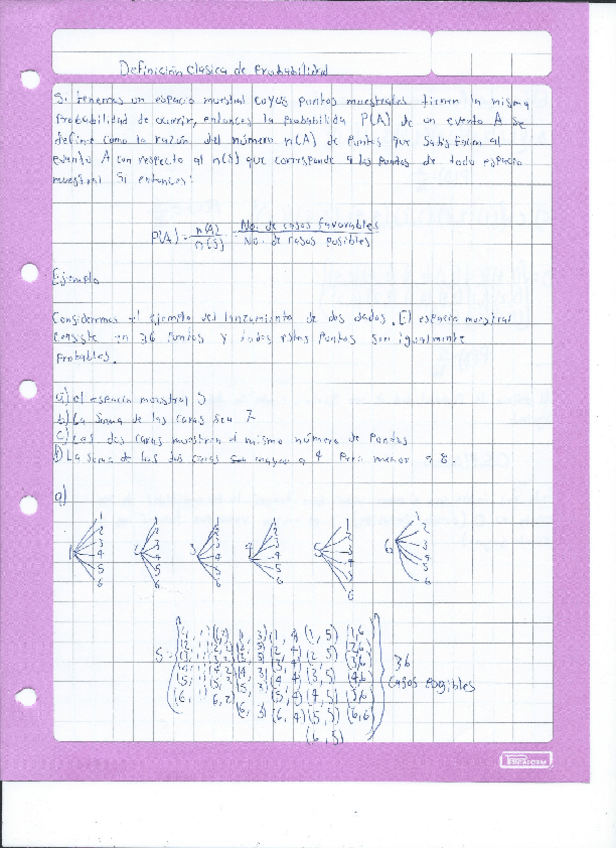 Definición clasica de Probabilidad
Si tenemos un espacio muestral cuyos puntos muestrales tienen la misma
Probabilidad de ocurrir, entonces la probabilida P(A) de un evento A se
define como la razón del número n(A) de Puntos que Satisfacen al
evento A con respecto al n(S) que corresponde a los puntos de todo espacio
muestral Si entonces:
P(A) = n(A) / n(S) = No. de casos favorables / No. de casos posibles
Ejemplo
Consideremos el ejemplo del lanzamiento de dos dados. El espacio muestral
consiste en 36 Puntos y todos estos puntos son igualmente
Probables.
a) el espacio muestral S
b) La Suma de las caras sea 7
c) Las dos caras muestren el mismo número de Puntos
La suma de las dos caras mayor a 4 Pero menor a 8.
a)
1 1 2 3 4 5 6
2 1 2 3 4 5 6
3 1 2 3 4 5 6
4 1 2 3 4 5 6
5 1 2 3 4 5 6
6 1 2 3 4 5 6
S =
(1, 5) (1,6
(2, 5)
(3, 5)
(5, 4) (4, 5)
(6, 4) (5, 5) (6,6)
(6, 5)
36
casos posibles